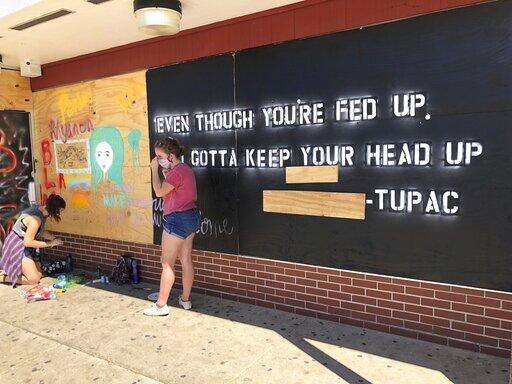 EVEN THOUGH YOU'RE FED UP.
GOTTA KEEP YOUR HEAD UP
-TUPAC